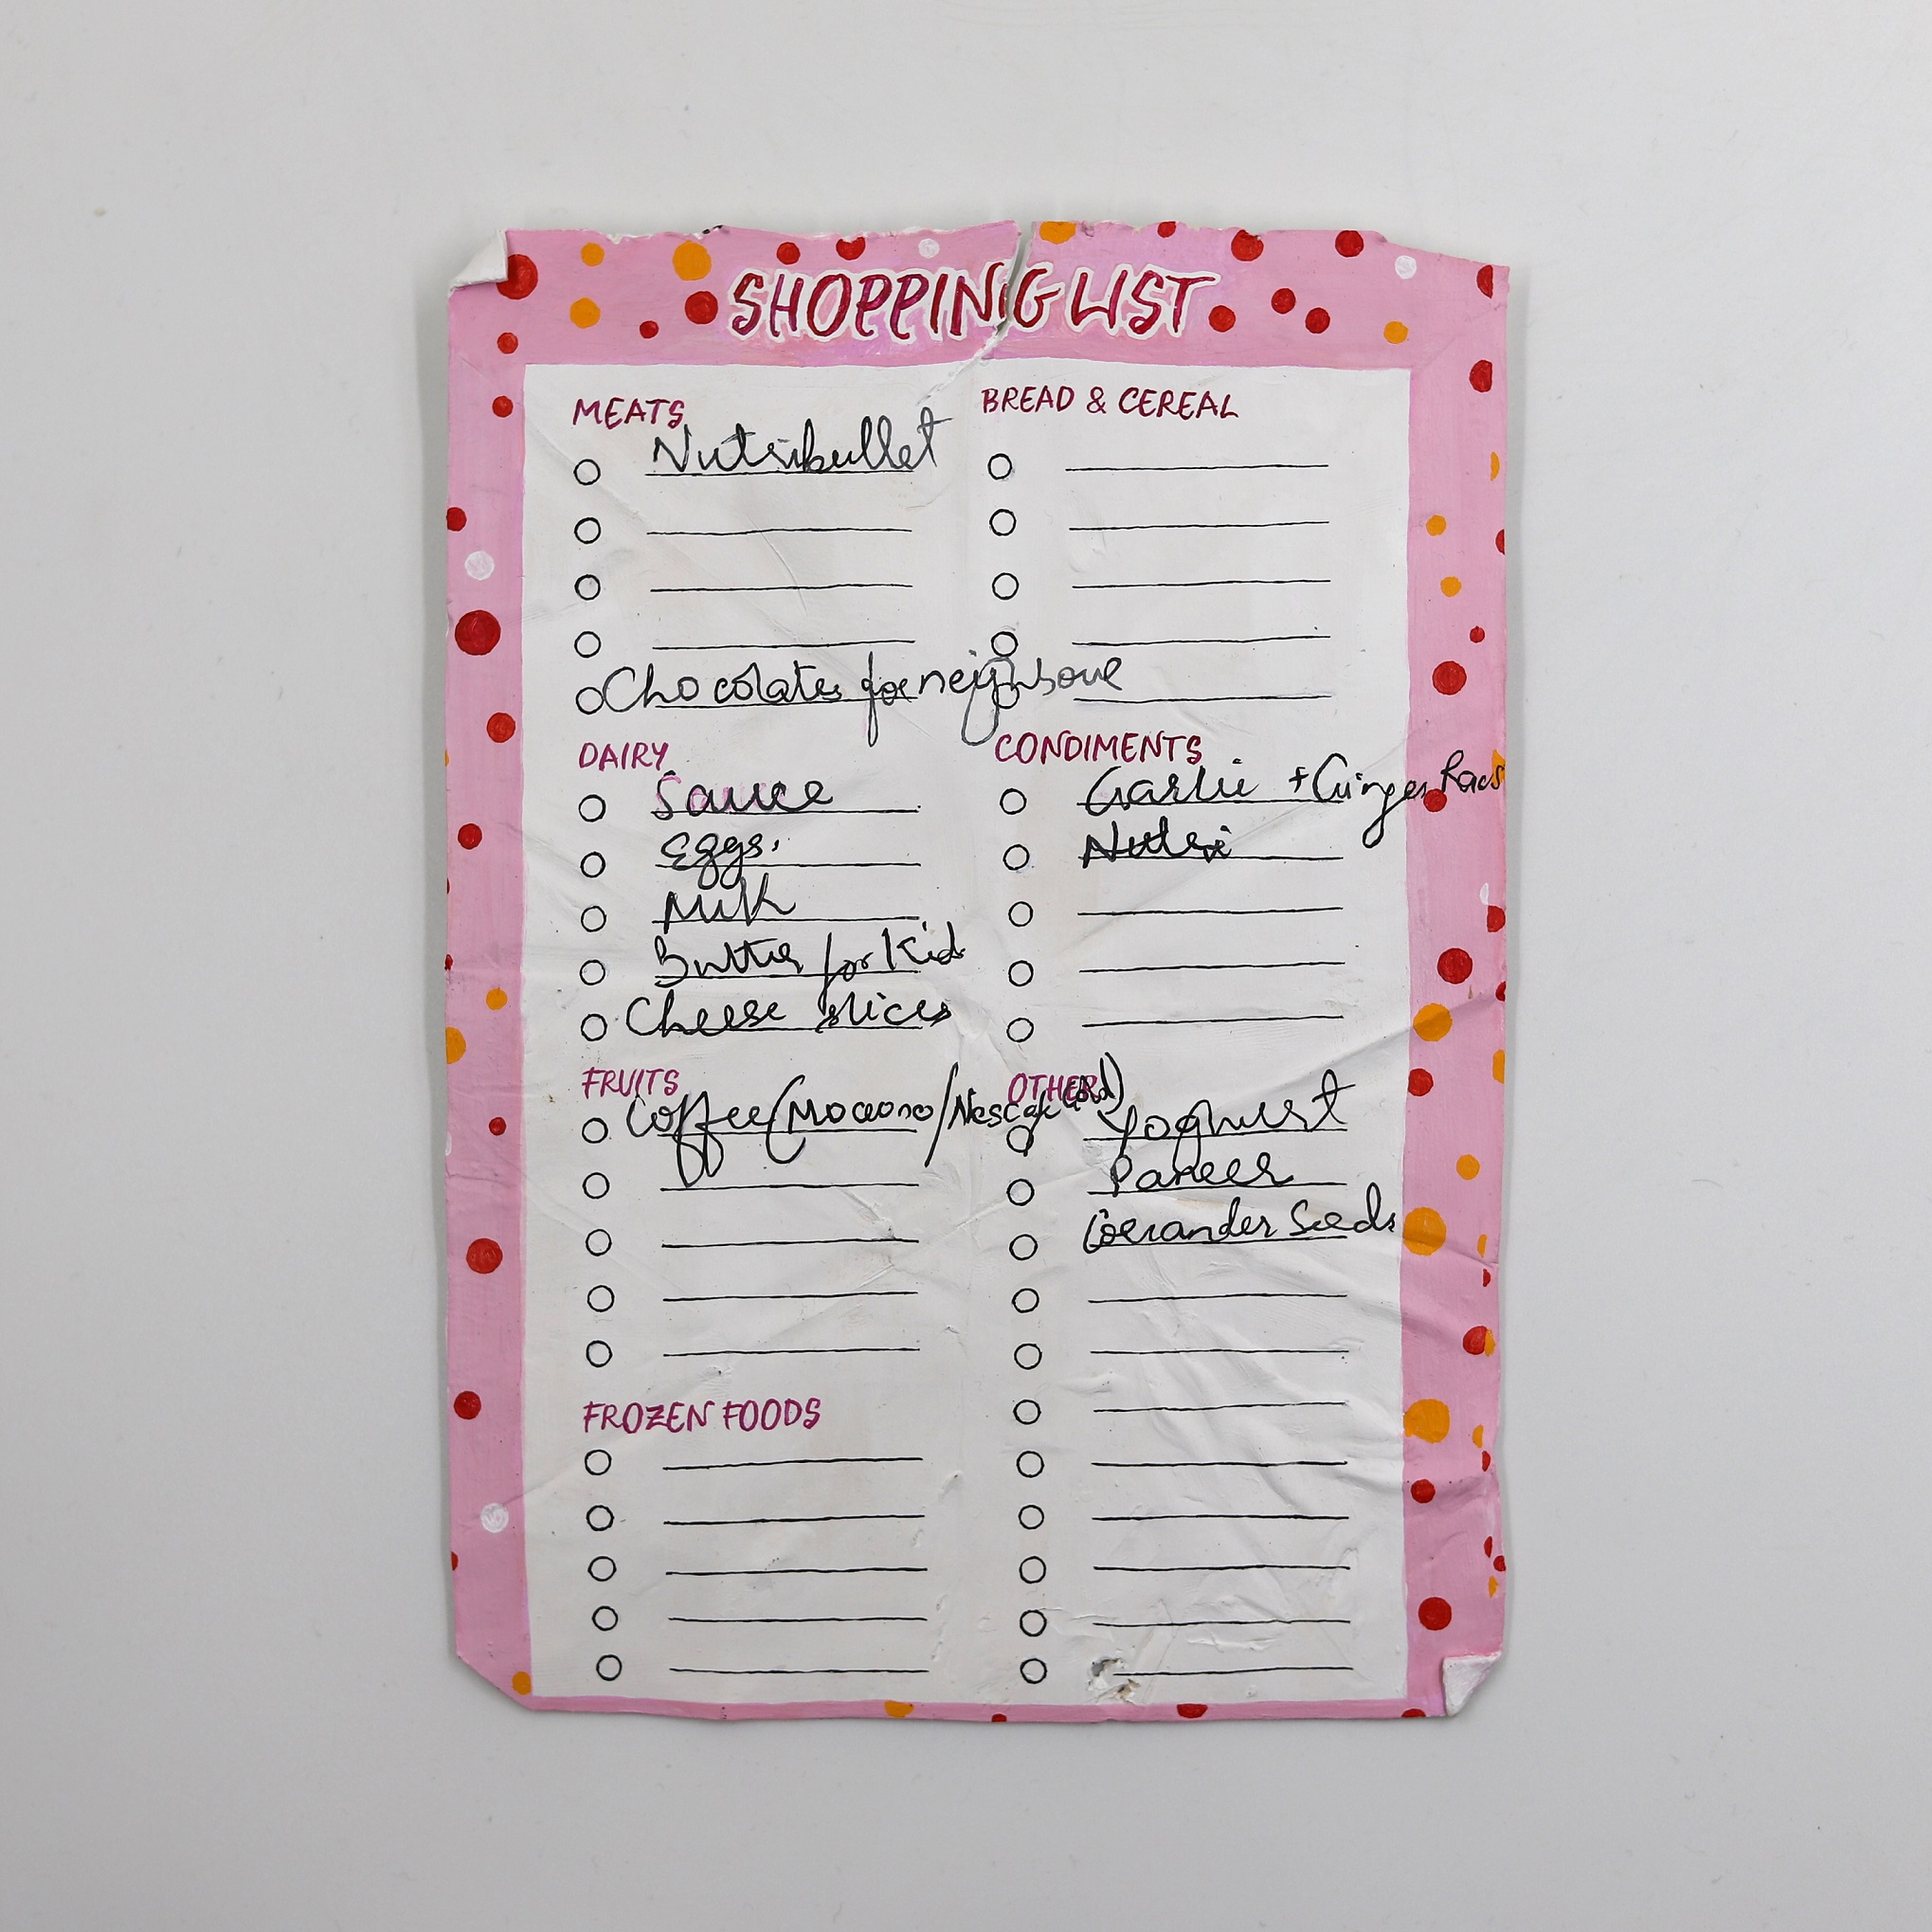 SHOPPING LIST
MEATS
Nutribullet
Chocolates for neighbour
BREAD & CEREAL
DAIRY
Sauce
Eggs.
Milk
Butter for Kid
Cheese slices
CONDIMENTS
Garlic + Ginger
Nutri
FRUITS
Coffee (Moccono/Nescafe Gold)
OTHER
Yoghurt
Paneer
Coriander Seeds
FROZEN FOODS